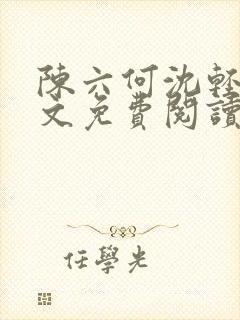 陳六何沈輕
文免費閱讀
任學光